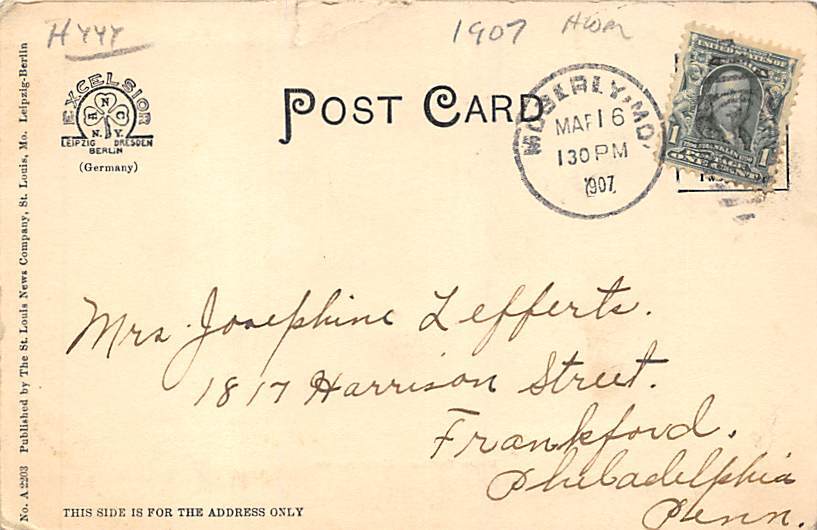 H YYY
1907
EXCELSIOR
N
C
N. Y.
LEIPZIG DRESDEN
BERLIN
(Germany)
POST CARD
MOBERLY, MO.
MAR 16
1 30 PM
1907
1
ONE CENT
1
Mrs. Josephine Lefferts.
1817 Harrison Street.
Frankford.
Philadelphia
Penn.
THIS SIDE IS FOR THE ADDRESS ONLY
No. A 2203 Published by The St. Louis News Company, St. Louis, Mo. Leipzig-Berlin